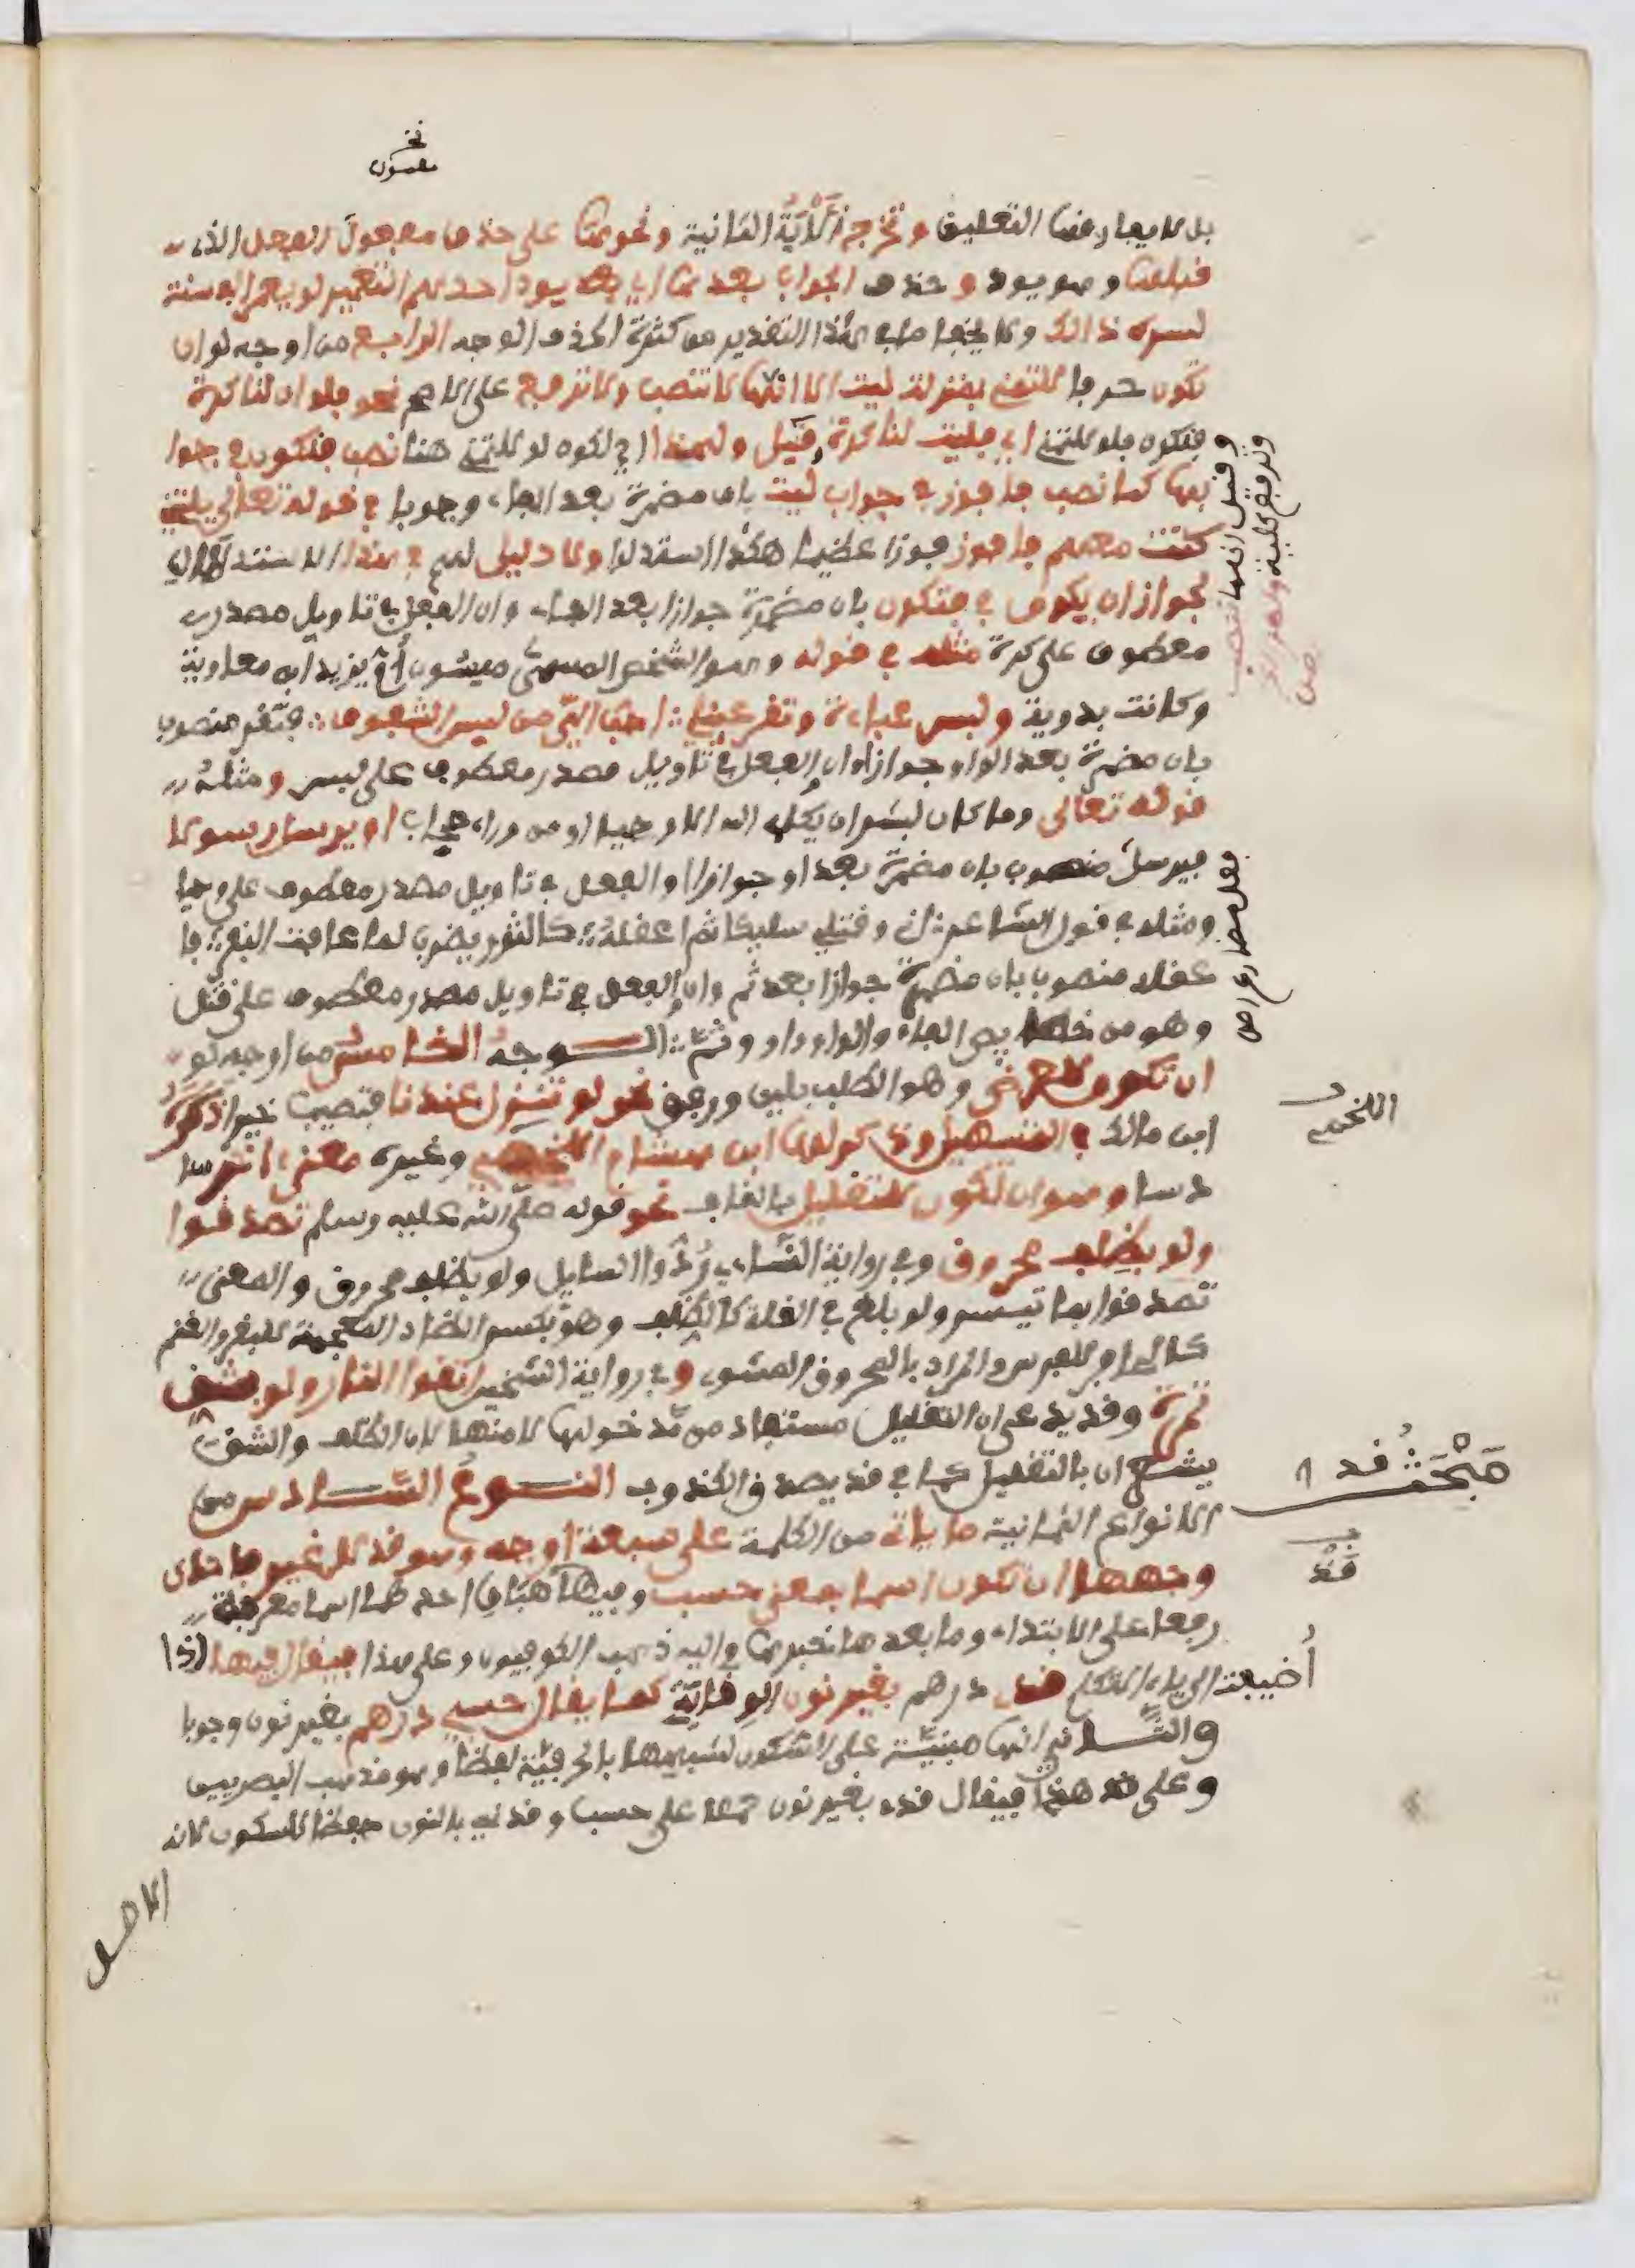 نخ
مفعول
بل لا يعارضها التعليق وتخرج الآية الثانية ونحوها على حذف مفعول الفعل الذي
قبلها وهو يود وحذف الجواب بعدها اي يود احدهم التعمير لو يعمر الف سنة
لسره ذالك ولا يخفى ما في هذا التقدير من كثرة الحذف الوجه الرابع من اوجه لو ان
تكون حرفا للتمني بمنزلة ليت الا انها لا تنصب ولا ترفع على الاصح نحو فلو ان لنا كرة
فنكون فلو للتمني اي فليت لنا كرة قيل ولهذا اي لكون لو للتمني هنا نصب فنكون في جوا
بها كما نصب فافوز في جواب ليت بان مضمرة بعد الفاء وجوبا في قوله تعالى يليتني
كنت معهم فافوز فوزا عظيما هكذا استدلوا ولا دليل لهم في هذا الاستدلال
لجواز ان يكون في فنكون بان مضمرة جوازا بعد الفاء وان الفعل في تاويل مصدر
معطوف على كرة مثله في قوله وهو الشخص المسمى ميسون ام يزيد ابن معاوية
وكانت بدوية ولبس عباءة وتقر عيني احب الي من لبس الشفوف فتقر منصوب
بان مضمرة بعد الواو جوازا وان الفعل في تاويل مصدر معطوف على لبس ومثله
قوله تعالى وما كان لبشر ان يكلمه الله الا وحيا او من وراء حجاب او يرسل رسولا
فيرسل منصوب بان مضمرة بعد او جوازا والفعل في تاويل مصدر معطوف على وحيا
ومثله في قول الشاعر اني وقتلي سليكا ثم اعقله كالثور يضرب لما عافت البقر فا
عقله منصوب بان مضمرة جوازا بعد ثم وان الفعل في تاويل مصدر معطوف على قتل
وهو من خصائص الفاء والواو واو وثم الوجه الخامس من اوجه لو
ان تكون للعرض وهو الطلب بلين ورفق نحو لو تنزل عندنا فتصيب خيرا ذكره
ابن مالك في التسهيل وذكر لها ابن هشام اللخمي وغيره معنى اخر سا
دسا وهو ان تكون للتقليل بالقاف نحو قوله صلى الله عليه وسلم تصدقوا
ولو بظلف محروق وفي رواية النساءي ردوا السايل ولو بظلف محروق والمعنى
تصدقوا بما تيسر ولو بلغ في القلة كالظلف وهو بكسر الظاء المعجمة للبقر والغنم
كالحافر للفرس والمراد بالمحروق المشوي وفي رواية الشيخين اتقوا النار ولو بشق
تمرة وقد يدعى ان التقليل مستفاد من مدخولها لا منها لان الظلف والشق
يشعران بالتقليل كما في قد يصدق الكذوب النوع السادس من
الانواع الثمانية ما ياتي من الكلمة على سبعة اوجه وهو قد لا غير فاحدى
وجهها ان تكون اسما بمعنى حسب وفيها مذهبان احدهما انها معربة
رفعا على الابتداء وما بعدها خبرها واليه ذهب الكوفيون وعلى هذا فيقال فيها اذا
أضيفت الى ياء المتكلم قدي درهم بغير نون الوقاية كما يقال حسبي درهم بغير نون وجوبا
والثاني انها مبنية على السكون لشبهها بالحرفية لفظا وهو مذهب البصريين
وعلى هذا فيقال قدي بغير نون حملا على حسب وقدني بالنون حفظا للسكون لانه
الاصل
وقيل انها تنصب
وترفع
فعل مضارع اص
اللخمي
مبحث قد
قد